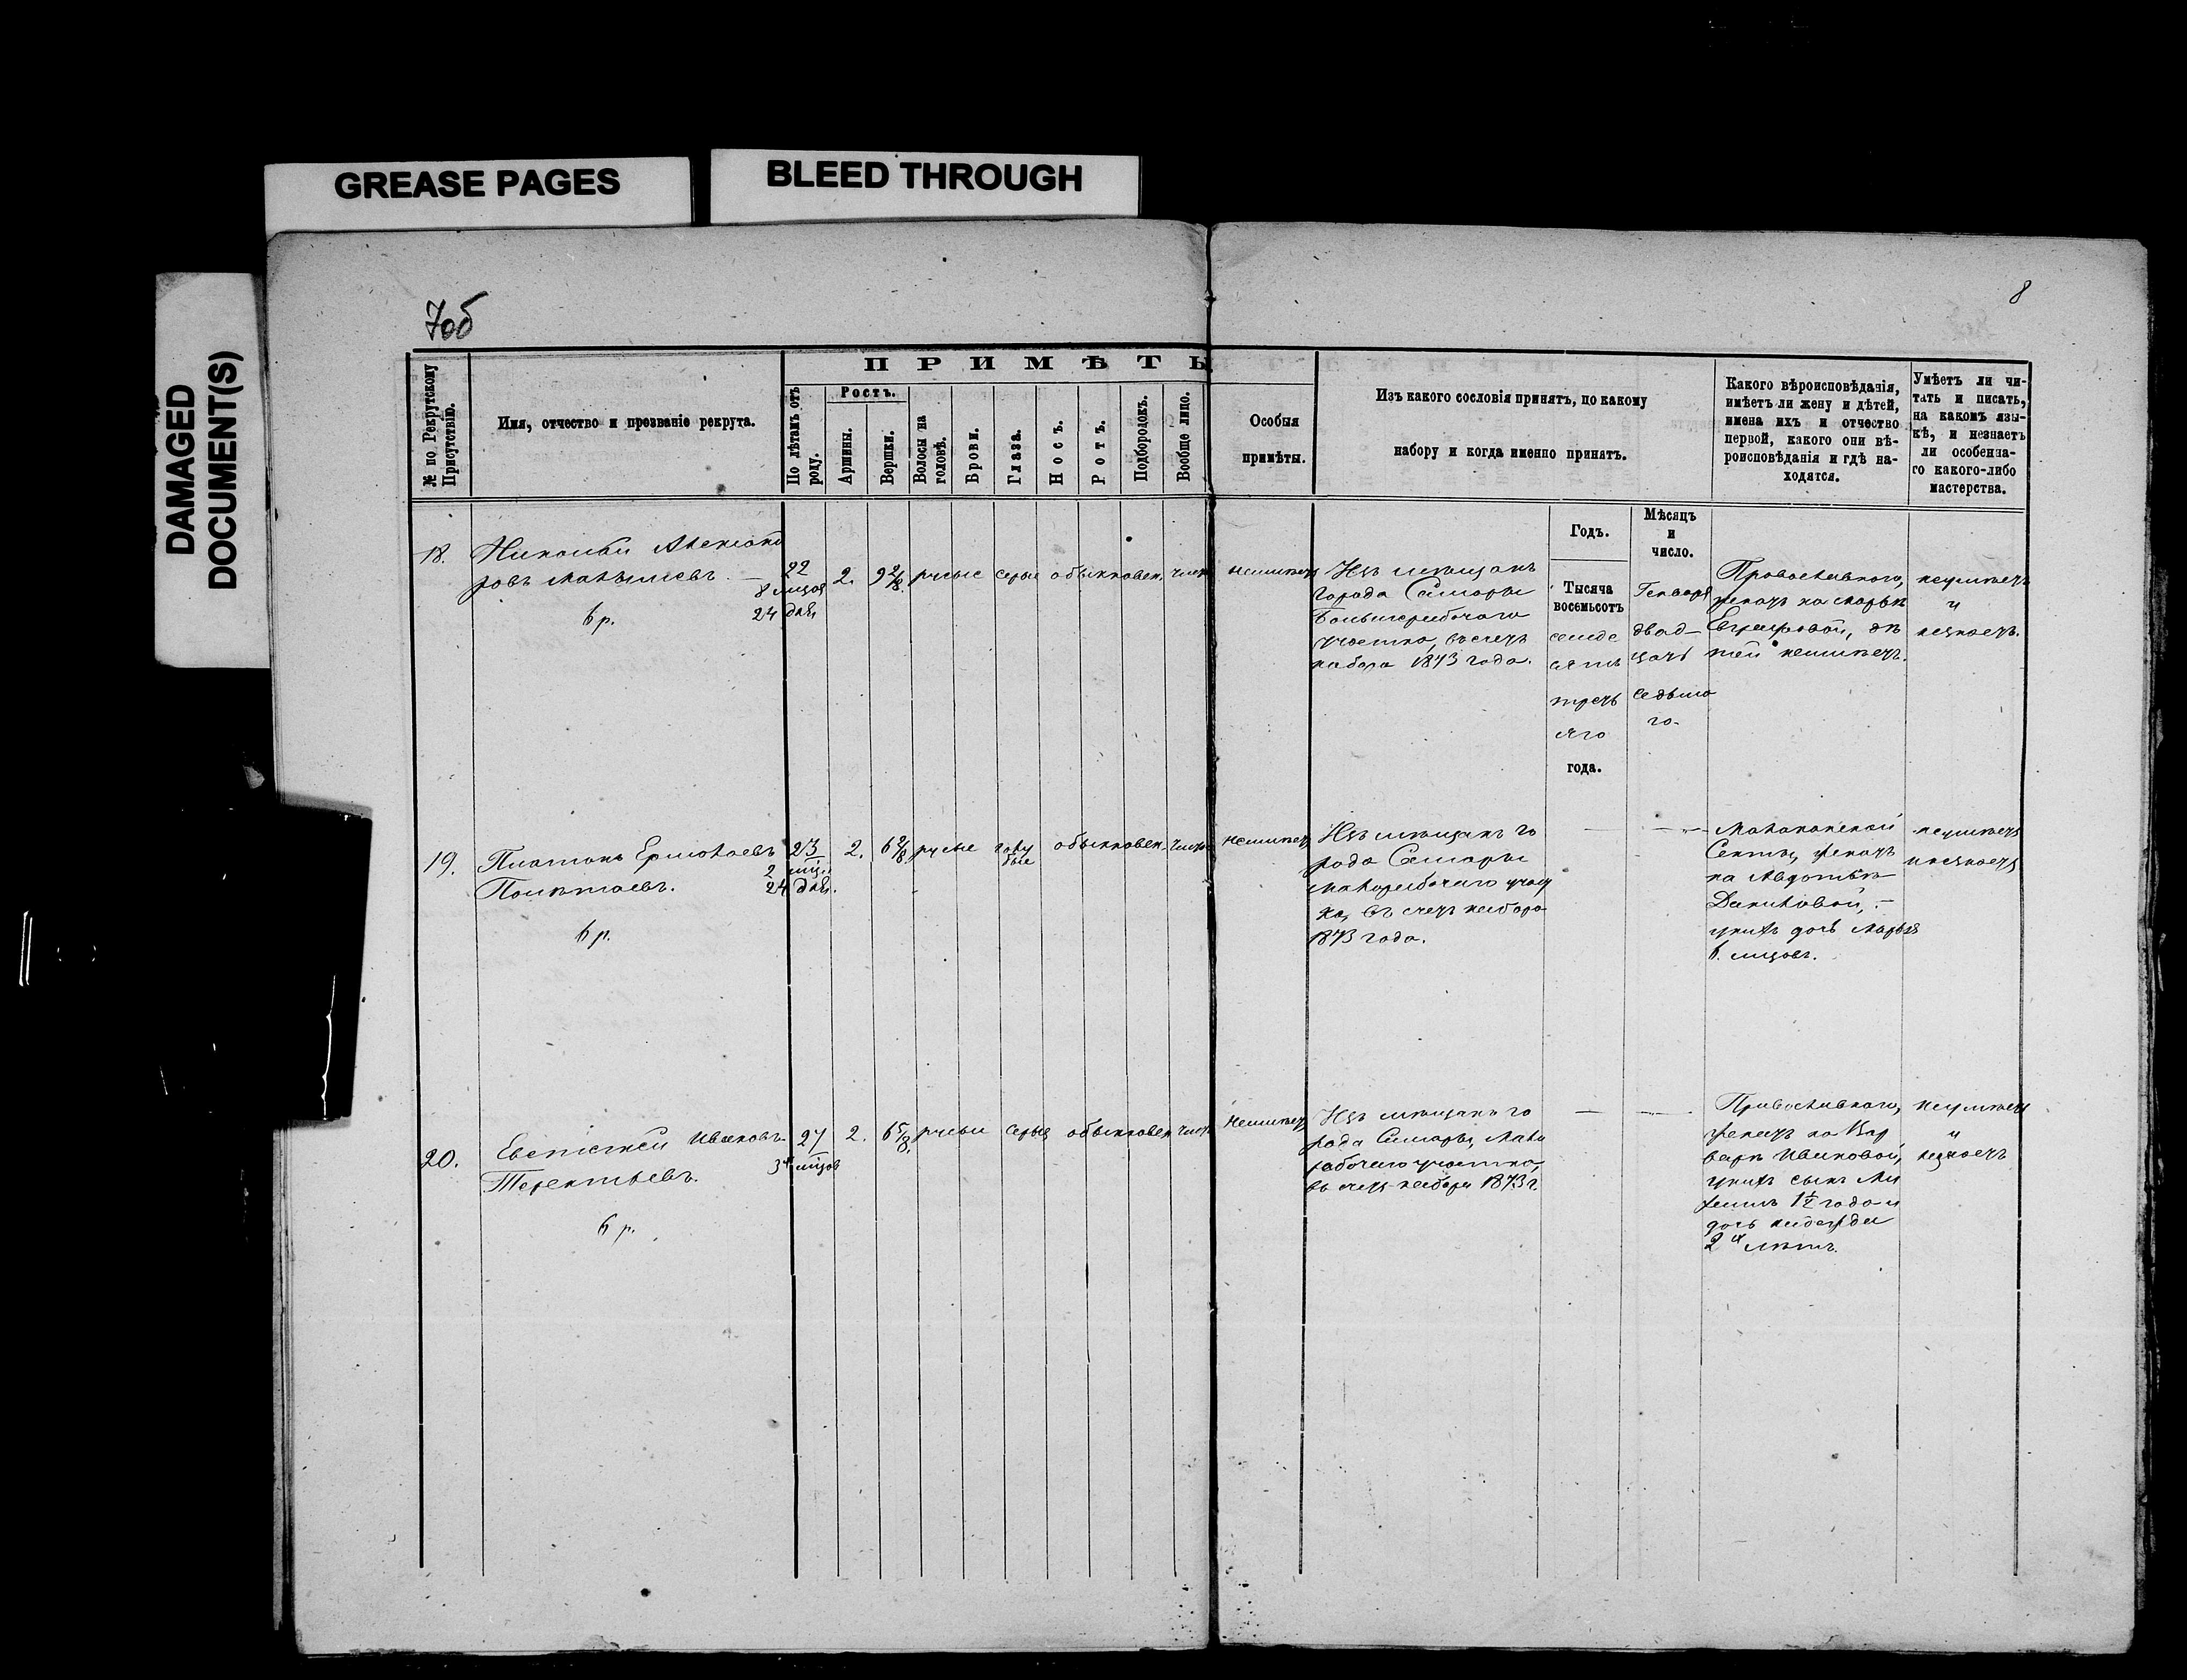 GREASE PAGES
BLEED THROUGH
DAMAGED
DOCUMENT(S)
7об
8
ПРИМѢТЫ
№ по Рекрутскому
Присутствію.
Имя, отчество и прозваніе рекрута.
По лѣтамъ отъ
роду.
Ростъ.
Аршины.
Вершки.
Волосы на
головѣ.
Брови.
Глаза.
Носъ.
Ротъ.
Подбородокъ.
Вообще лицо.
Особыя
примѣты.
Изъ какого сословія принятъ, по какому
набору и когда именно принятъ.
Какого вѣроисповѣданія,
имѣетъ ли жену и дѣтей,
имена ихъ и отчество
первой, какого они вѣ-
роисповѣданія и гдѣ на-
ходятся.
Умѣетъ ли чи-
тать и писать,
на какомъ язы-
кѣ, и незнаетъ
ли особенна-
го какого-либо
мастерства.
Годъ.
Мѣсяцъ
и
число.
18.
Николай Александ
ровъ
6 р.
22
8 мцов
24 дня
2.
9 2/8.
русые
серые
обыкновен.
чист
неимѣетъ
Изъ мѣщанъ
города Самары
Большерабочаго
участка, въ счетъ
набора 1873 года.
Тысяча
восемьсотъ
семде
сятъ
треть
яго
года.
Генваря
двад-
цать
седьма
го.
Православнаго,
женатъ на Марьѣ
дѣ
тей неимѣетъ.
неумѣетъ
и
незнаетъ.
19.
Платонъ Ермолаевъ
Полѣтаевъ.
6 р.
23
2 мц.
24 дня.
2.
6 2/8
русые
голу
бые
обыкновен.
чист
неимѣетъ
Изъ мѣщанъ го
рода Самары
Малорабочаго учас
ка, въ счетъ набора
1873 года.
Молоканской
Секты, женатъ
на Авдотьѣ
Даниловой,
унихъ дочь Марья
6. мцовъ.
неумѣетъ
и незнаетъ
20.
Евстигней Ивановъ
Терентьевъ.
6 р.
27
3 мцов
2.
6 5/8.
русыя
серыя
обыкновен
чист
неимѣетъ
Изъ мѣщанъ го
рода Самары, Мало
рабочаго участка,
въ счетъ набора 1873 г.
Православнаго,
женатъ на Вар
варѣ Ивановой,
унихъ сынъ
1½ года и
дочь
2 х лѣтъ.
неумѣетъ
и
незнаетъ